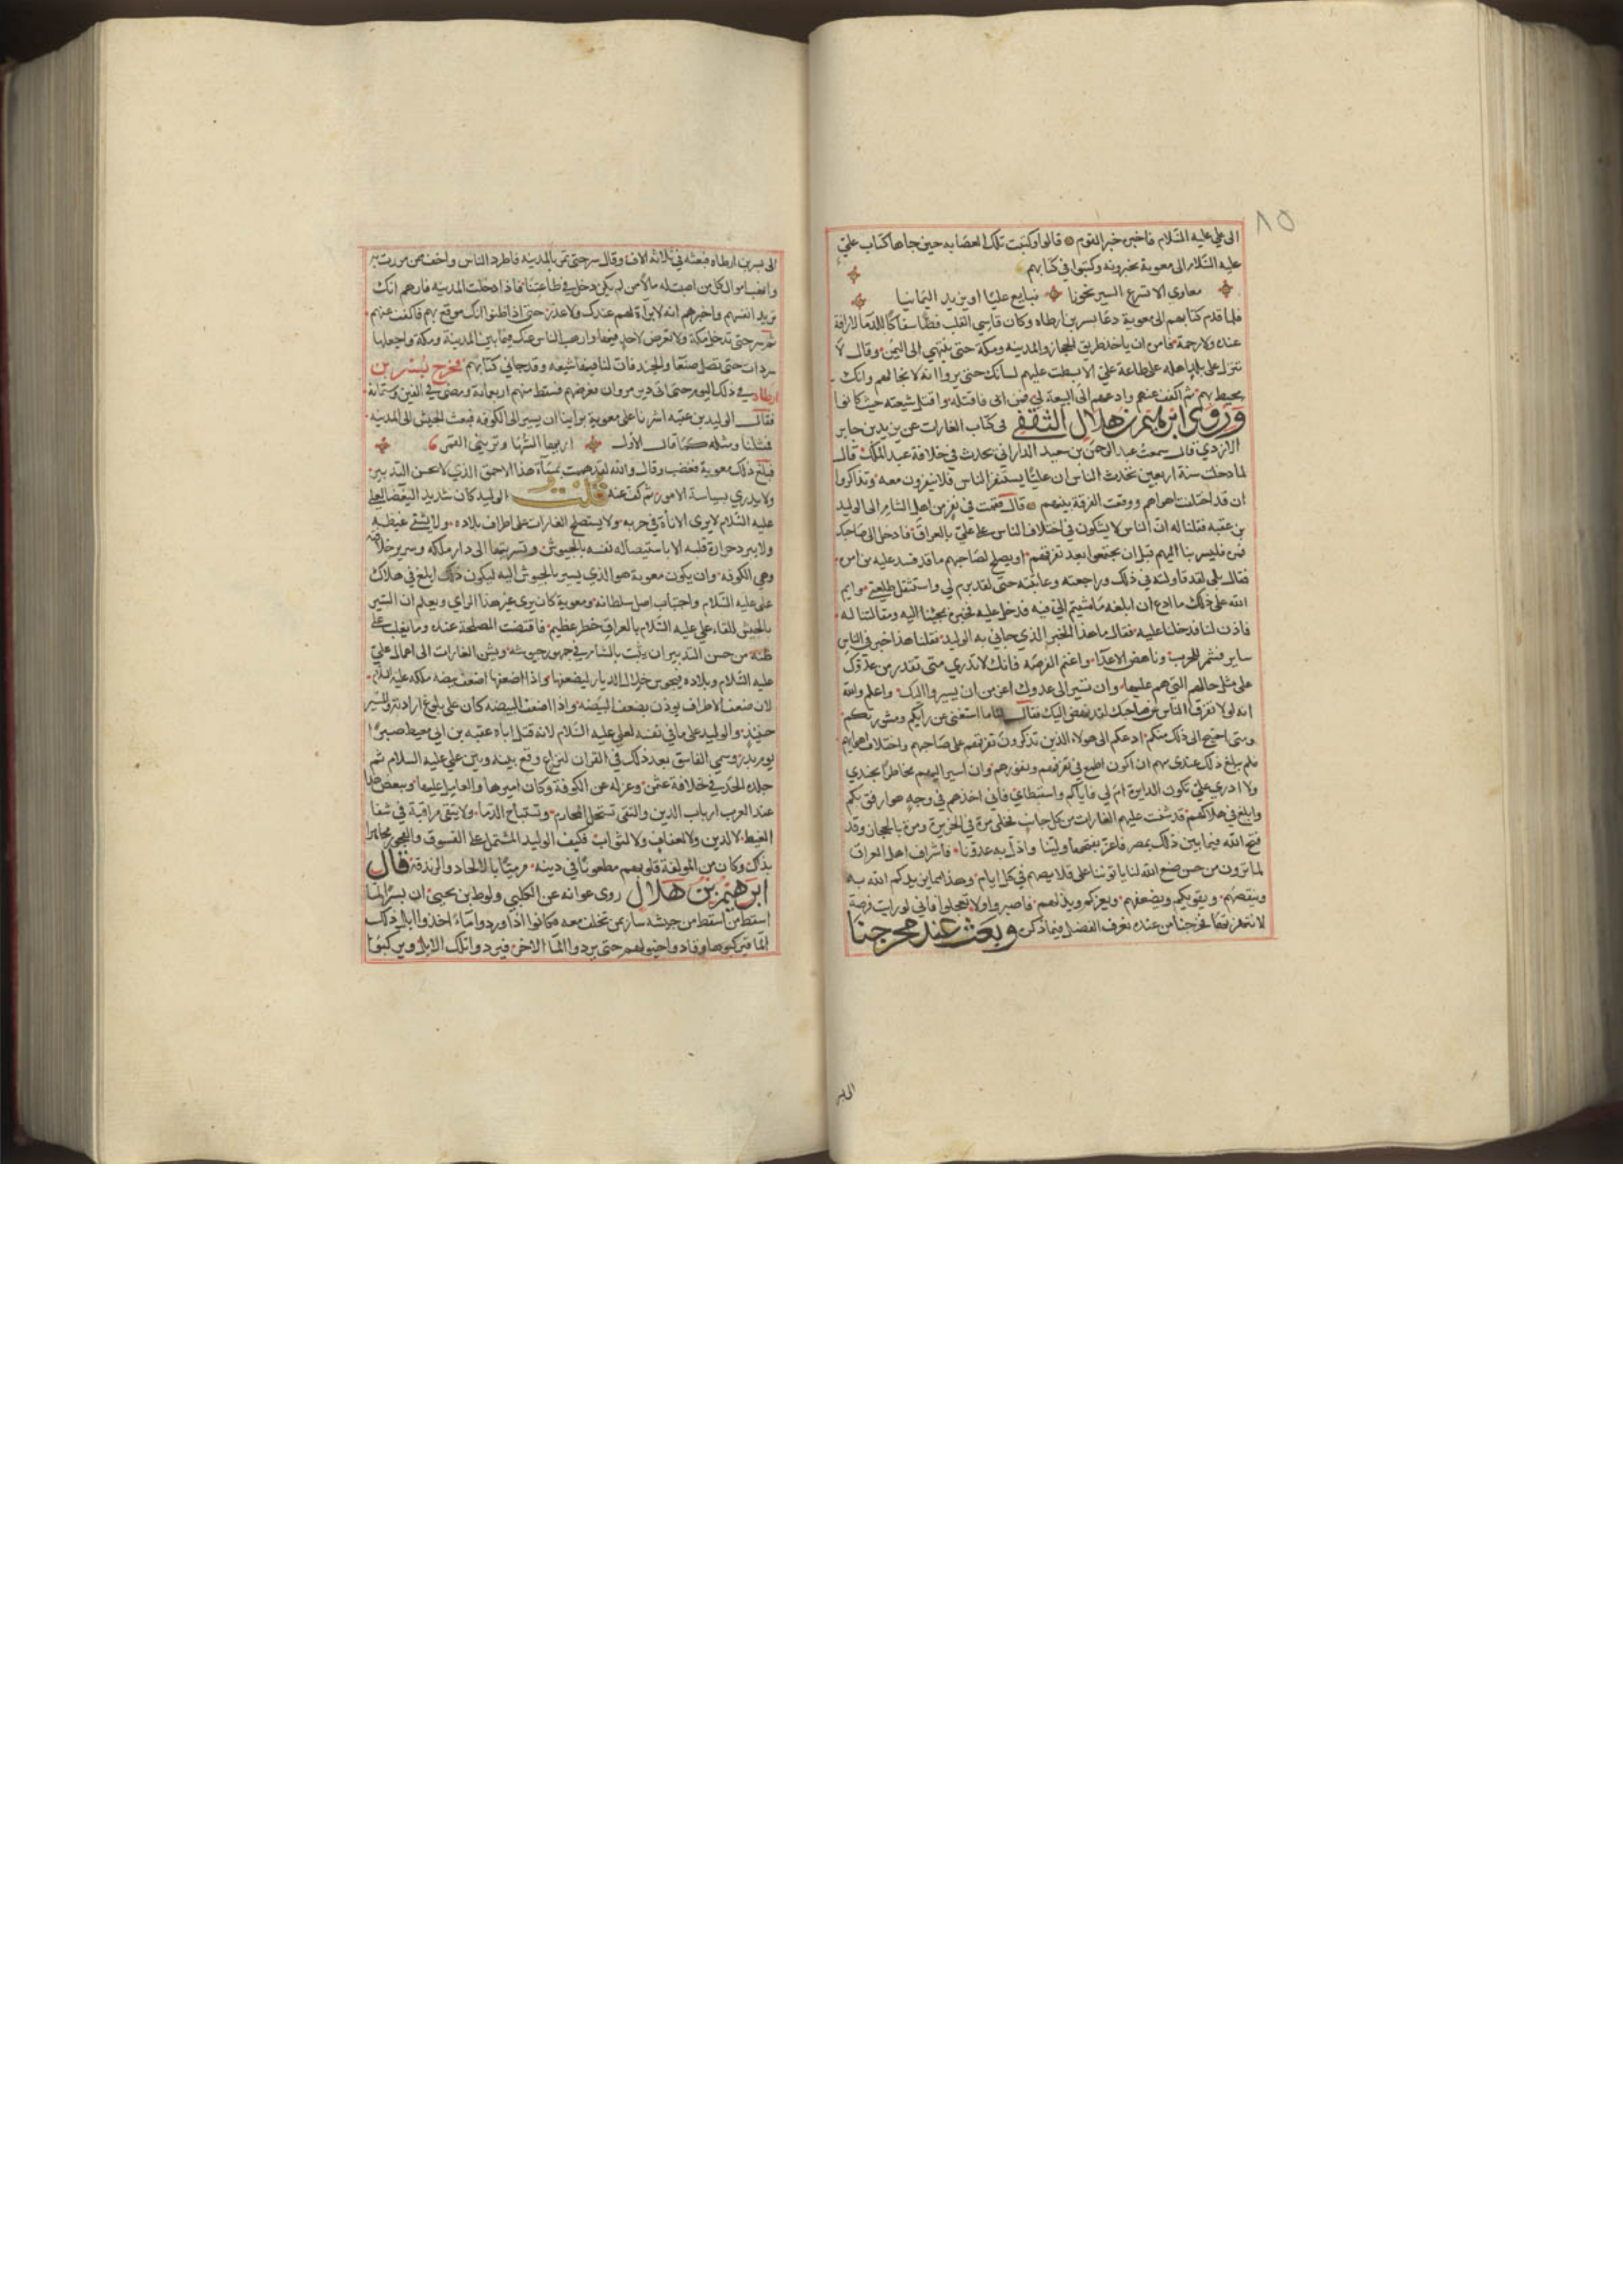 ٨٥
الى علي عليه السلام فاخبره خبر القوم قالوا وكتبت تلك العصابه حين جاها كتاب علي
عليه السلام الى معوية يخبرونه وكتبوا في كتابهم
معاوي الا تسرع السير نحونا نبايع عليا او يزيد اليمانيا
فلما قدم كتابهم الى معوية دعا بسر بن ارطاه وكان قاسي القلب فظا سفاكا للدما لا رافة
عنده ولا رحمة فامره ان ياخذ طريق الحجاز والمدينه ومكة حتى ينتهي الى اليمن وقال لا
تنزل على بلد اهله على طاعة علي الا بسطت عليهم لسانك حتى يروا انه لا نجا لهم وانك
محيط بهم ثم اكفف عنهم وادعهم الى البيعة لي فمن ابى فاقتله واقتل شيعته حيث كانوا
وروى ابرهيم بن هلال الثقفي في كتاب الغارات عن يزيد بن جابر
الازدي قال سمعت عبد الرحمن بن مسعدة الداراني يحدث في خلافة عبد الملك قال
لما دخلت سنة اربعين تحدث الناس ان عليا يستنفر الناس فلا ينفرون معه وتذاكروا
ان قد اختلفت اهواهم ووقعت الفرقة بينهم قال فقمت في نفر من اهل الشام الى الوليد
بن عقبه فقلنا له ان الناس لا يشكون في اختلاف الناس على علي بالعراق فادخل الى صاحبك
فمره فليسر بنا اليهم قبل ان يجتمعوا بعد تفرقهم او يصلح لصاحبهم ما قد فسد عليه من امره
فقال بلى لقد قاولته في ذلك وراجعته وعاتبته حتى لقد برم بي واستثقل طلعتي وايم
الله على ذلك ما ادع ان ابلغه ما مشيتم الي فيه فدخل عليه فخبره بمجيئنا اليه ومقالتنا له
فاذن لنا فدخلنا عليه فقال ما هذا الخبر الذي جاني به الوليد فقلنا هذا خبر في الناس
ساير فشمر للحرب وناهض الاعدا واغتنم الفرصه فانك لا تدري متى تقدر من عدوك
على مثل حالهم التي هم عليها وان تسير الى عدوك اعز من ان يسيروا اليك واعلم والله
انه لولا تفرق الناس عن صاحبك لقد نهض اليك فقال لنا ما استغني عن رايكم ومشورتكم
ومتى احتج الى ذلك منكم ادعكم الى هولاء الذين تذكرون تفرقهم على صاحبهم واختلاف اهوايهم
فلم يبلغ ذلك عندي بهم ان اكون اطمع في تفرقهم وبغورهم وان اسير اليهم مخاطرا بجندي
ولا ادري علي تكون الدايرة ام لي فاياكم واستبطاي فاني اخذهم في وجه هو ارفق بكم
وابلغ في هلاكهم قد شننت عليهم الغارات من كل جانب فخيلي مرة في الجزيرة ومرة بالحجاز وقد
فتح الله فيما بين ذلك مصر فاعز بفتحها ولينا واذل به عدونا فاشراف اهل العراق
لما يرون من حسن صنع الله لنا ياتوننا على قلايصهم في كل ايام وهذا مما يزيدكم الله به
وينقصهم ويقويكم ويضعفهم ويعزكم ويذلهم فاصبروا ولا تعجلوا فاني لو رايت فرصة
لانتهزتها فخرجنا من عنده نعرف الفضل فيما ذكر وبعث عند مخرجنا
الى بسر
الى بسر بن ارطاه فبعثه في ثلاثه الاف وقال سر حتى تمر بالمدينه فاطرد الناس واخف من مررت به
وانهب اموال كل من اصبت له مالا من لم يكن دخل في طاعتنا فاذا دخلت المدينه فارهم انك
تريد انفسهم واخبرهم انه لا براة لهم عندك ولا عذر حتى اذا ظنوا انك موقع بهم فاكفف عنهم
ثم سر حتى تدخل مكة ولا تعرض لاحد فيها وارهب الناس عنك فيما بين المدينة ومكة واجعلها
شردات حتى تصل صنعا والجند فان لنا فيهما شيعه وقد جاني كتابهم فخرج بسر بن
ارطاه في ذلك البعث حتى اتى دير مروان فعرضهم فسقط منهم اربعمائة ومضى في الفين وستمائه
فقال الوليد بن عقبه اشرنا على معوية براينا ان يسير الى الكوفه فبعث الجيش الى المدينه
فمثلنا ومثله كما قال الاول اريها السها وتريني القمر
فبلغ ذلك معوية فغضب وقال والله لقد هممت بمساة هذا الاحمق الذي لا يحسن التدبير
ولا يدري بسياسة الامور ثم كف عنه قلت و الوليد كان شديد البغض لعلي
عليه السلام لا يرى الاناة في حربه ولا يستصلح الغارات على اطراف بلاده ولا يشفي غيظه
ولا يبرد حرارة قلبه الا باستيصاله نفسه بالجيوش وتسريبها الى دار ملكه وسرير خلافته
وهي الكوفه وان يكون معوية هو الذي يسير بالجيوش اليه ليكون ذلك ابلغ في هلاك
علي عليه السلام واجتثاث اصل سلطانه ومعوية كان يرى غير هذا الراي ويعلم ان السير
بالجيش للقاء علي عليه السلام بالعراق خطر عظيم فاقتضت المصلحة عنده وما يغلب على
ظنه من حسن التدبير ان يثبت بالشام في جمهور جيوشه ويشن الغارات الى اعمال علي
عليه السلام وبلاده فيجوس خلال الديار ليضعفها واذا اضعفها اضعف بيضه ملكه عليه السلام
لان ضعف الاطراف يوذن بضعف البيضه واذا اضعف البيضه كان على بلوغ ارادته والسير
حينئذ والوليد على ما في نفسه لعلي عليه السلام لانه قتل اباه عقبه بن ابي معيط صبرا
يوم بدر وسمي الفاسق بعد ذلك في القران لنزاع وقع بينه وبين علي عليه السلام ثم
جلده الحد في خلافة عثمن وعزله عن الكوفة وكان اميرها والعامل عليها وببعض هذا
عند العرب ارباب الدين والتقى تستحل المحارم وتستباح الدما ولا يتقى مراقبة في شفا
الغيظ لا لدين ولا لعفاف ولا لثواب فكيف الوليد المشتمل على الفسوق والفجور مجاهرا
بذلك وكان من المولفة قلوبهم مطعونا في دينه مرميا بالالحاد والزندقة قال
ابرهيم بن هلال روى عوانه عن الكلبي ولوط بن يحيى ان بسرا لما
اسقط من اسقط من جيشه سار بمن تخلف معه فكانوا اذا وردوا ماء اخذوا ابل ذلك
الما فركبوها وقادوا خيولهم حتى يردوا الما الاخر فيردوا تلك الابل ويركبوا